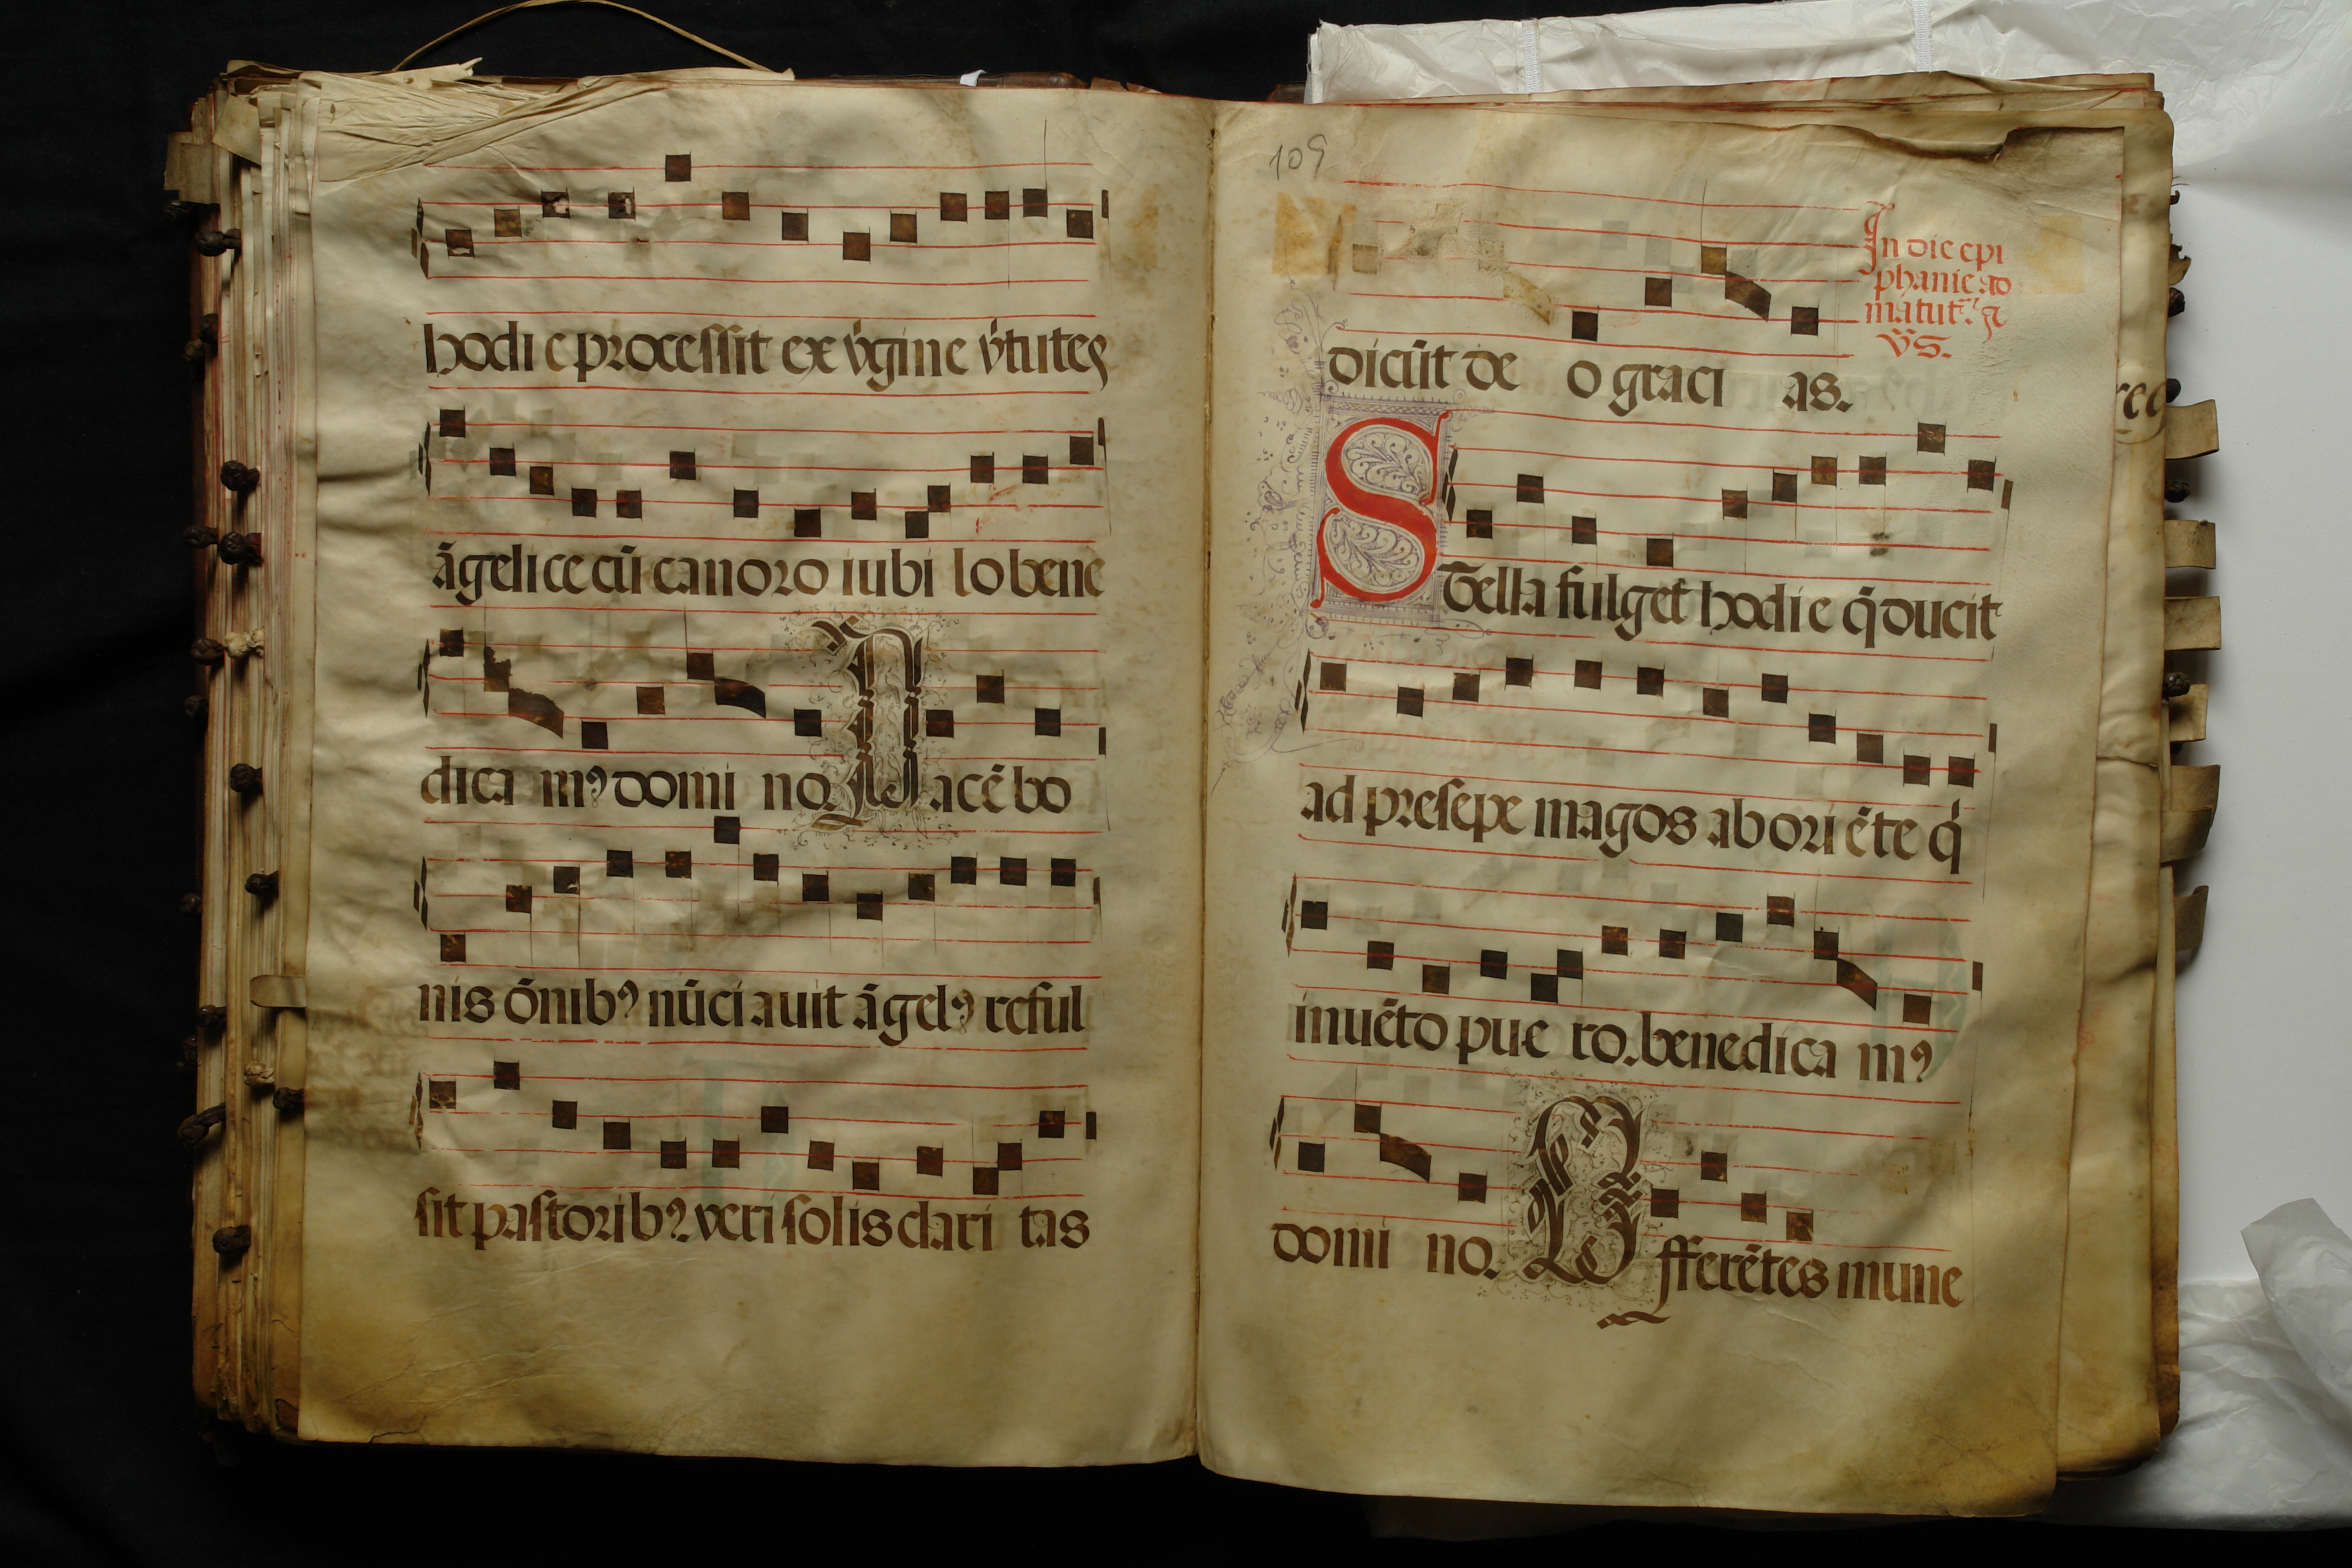 hodie processit ex v̓gine v̓tutes
āgelice cū canoro iubilo bene
dicamꝰ domino. Nacēbo
nis ōnibꝰ nūciauit āgelꝰ reful
sit pastoribꝰ. veri solis clari tas
109
dicūt deo gracias.
In die epi
phanie ad
matut᷒. ⁊
v̄s.
Stella fulget hodie q̄ ducit
ad presepe magos ab oriēte q̓
inuēto puero. benedicamꝰ
domino. Offerētes mune